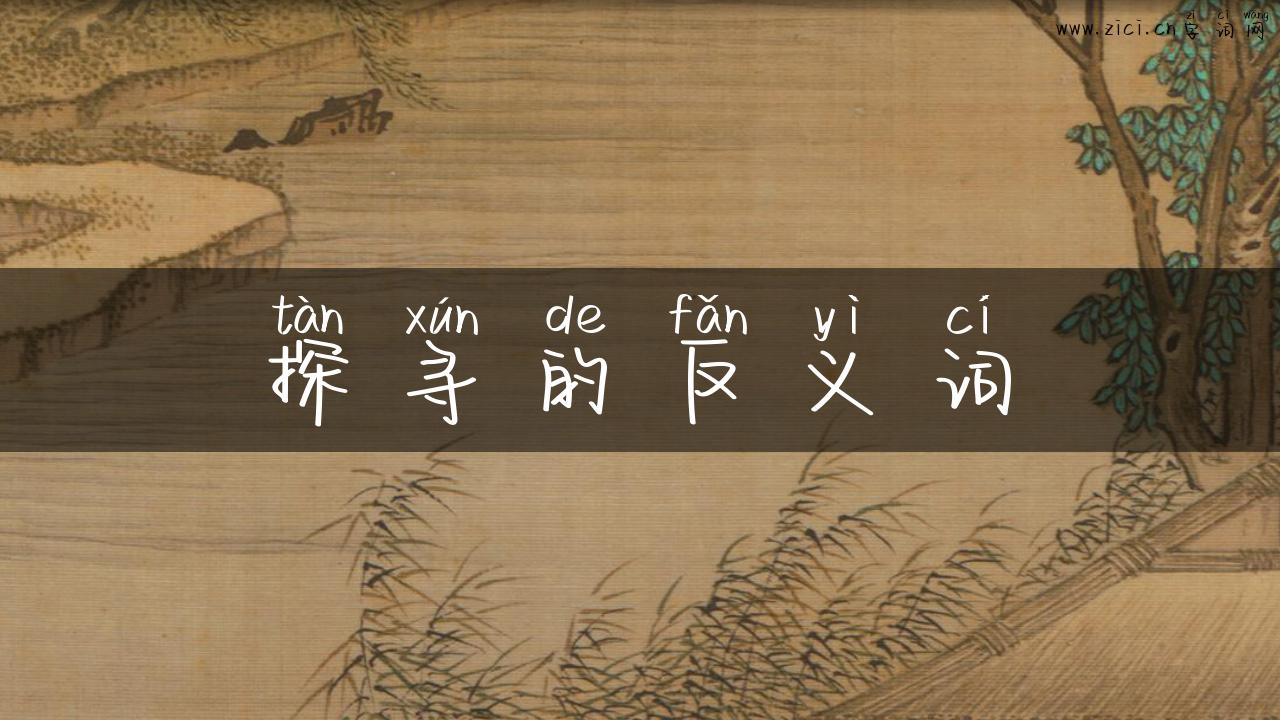 zì cí wǎng
www.zici.cn 字词网
tàn xún de fǎn yì cí
探寻的反义词